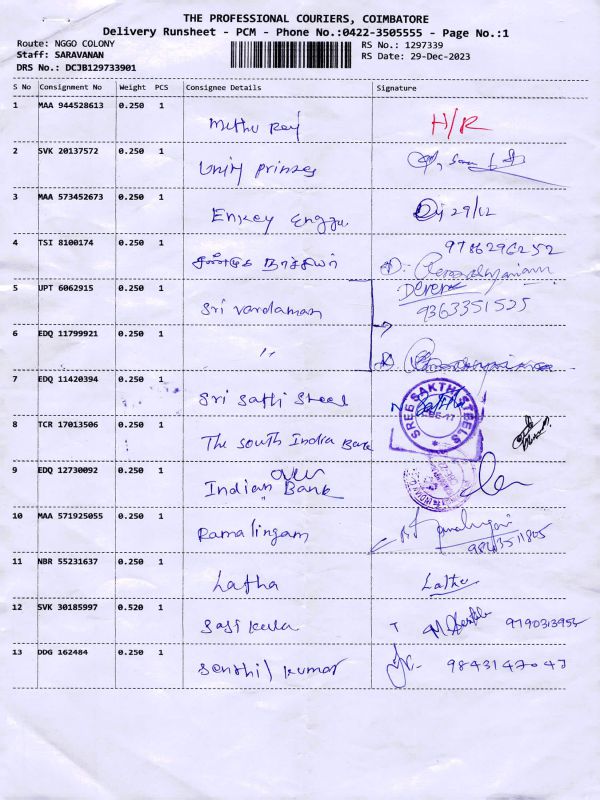 THE PROFESSIONAL COURIERS, COIMBATORE
Delivery Runsheet - PCM - Phone No.:0422-3505555 - Page No.:1
Route: NGGO COLONY RS No.: 1297339
Staff: SARAVANAN RS Date: 29-Dec-2023
DRS No.: DCJB129733901
S No Consignment No Weight PCS Consignee Details Signature
1 MAA 944528613 0.250 1
Muthu Raj H/R
2 SVK 20137572 0.250 1
Unity
3 MAA 573452673 0.250 1
Enkey 29/12
4 TSI 8100174 0.250 1
9786296252
5 UPT 6062915 0.250 1
Sri Vardaman 9363351525
6 EDQ 11799921 0.250 1
〃
7 EDQ 11420394 0.250 1
Sri Sakthi Steel SREE SAKTHI STEELS
8 TCR 17013506 0.250 1
The South India Bank
9 EDQ 12730092 0.250 1
Indian Bank
10 MAA 571925055 0.250 1
Ramalingam
9843511805
11 NBR 55231637 0.250 1
Latha Latha
12 SVK 30185997 0.520 1
Sasikala 9790313955
13 DDG 162484 0.250 1
Senthil kumar 9843147047